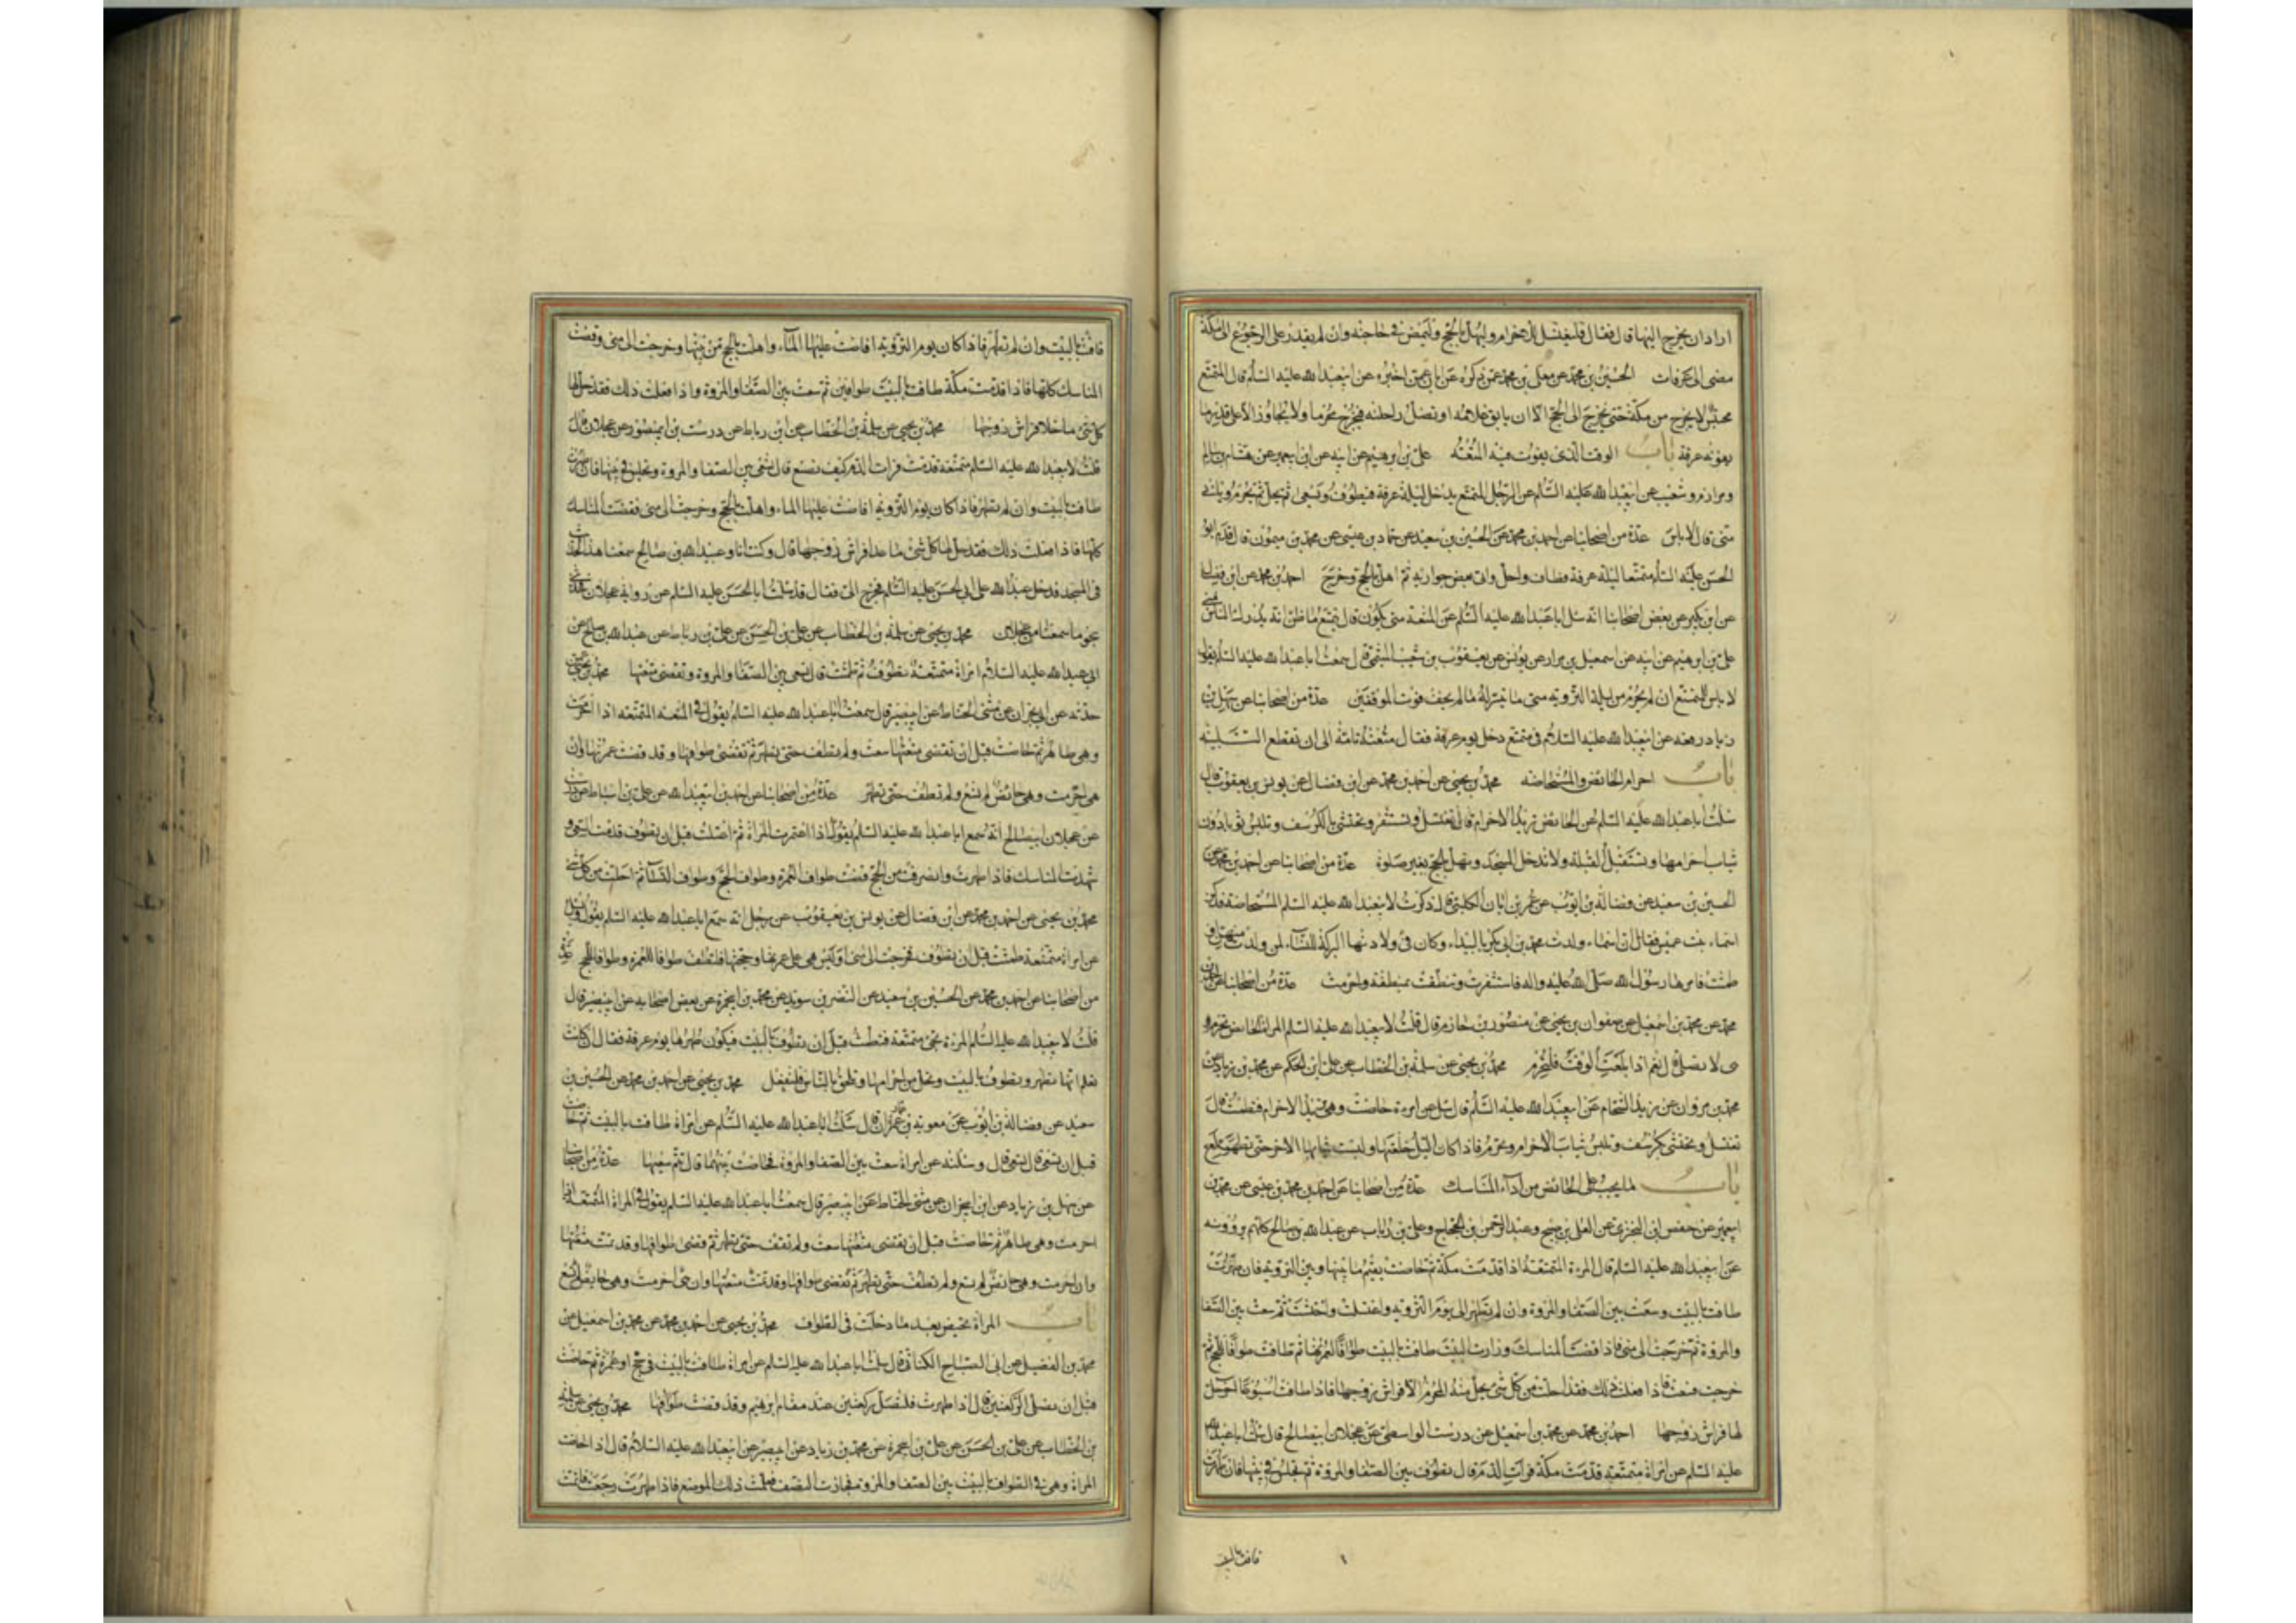 اراد ان يخرج اليها قال فقال فليغتسل للاحرام وليهل بالحج وليمض في حاجته وان لم يقدر على الرجوع الى مكة
مضى الى عرفات الحسين بن محمد عن معلى بن محمد عمن ذكره عن ابان عمن اخبره عن ابيعبدالله عليه السلم قال المتمتع
محتبس لا يخرج من مكة حتى يخرج الى الحج الا ان يابق غلامه او تضل راحلته فيخرج محرما ولا يجاوز الا على قدر ما
يفوته عرفة باب الوقت الذى يفوت فيه المتعة على بن ابرهيم عن ابيه عن ابن ابيعمير عن هشام بن سالم
ومرازم وشعيب عن ابيعبدالله عليه السلم عن الرجل المتمتع يدخل ليلة عرفة فيطوف ويسعى ثم يحل ثم يحرم وياتى
منى قال لا باس عدة من اصحابنا عن احمد بن محمد عن الحسين بن سعيد عن حماد بن عيسى عن محمد بن ميمون قال قدم ابو
الحسن عليه السلم متمتعا ليلة عرفة فطاف واحل واتى بعض جواريه ثم اهل بالحج وخرج احمد بن محمد عن ابن فضال
عن ابن بكير عن بعض اصحابنا انه سئل اباعبدالله عليه السلم عن المتعة متى تكون قال يتمتع ما ظن انه يدرك الناس بمنى
على بن ابرهيم عن ابيه عن اسمعيل بن مرار عن يونس عن يعقوب بن شعيب الميثمى قال سمعت اباعبدالله عليه السلم يقول
لا باس للمتمتع ان لم يحرم من ليلة التروية متى ما تيسر له ما لم يخف فوت الموقفين عدة من اصحابنا عن سهل بن
زياد رفعه عن ابيعبدالله عليه السلام في متمتع دخل يوم عرفة فقال متعته تامة الى ان تقطع التلبيه
باب احرام الحائض والمستحاضه محمد بن يحيى عن احمد بن محمد عن ابن فضال عن يونس بن يعقوب قال
سئلت اباعبدالله عليه السلم عن الحائض تريد الاحرام قال تغتسل وتستثفر وتحتشى بالكرسف وتلبس ثوبا دون
ثياب احرامها وتستقبل القبلة ولا تدخل المسجد وتهل بالحج بغير صلوة عدة من اصحابنا عن احمد بن محمد عن
الحسين بن سعيد عن فضالة بن ايوب عن عمر بن ابان الكلبى قال ذكرت لابيعبدالله عليه السلم المستحاضة فذكر
اسماء بنت عميس فقال ان اسماء ولدت محمد بن ابى بكر بالبيداء وكان في ولادتها البركة للنساء لمن ولدت منهن او
طمثت فامرها رسول الله صلى الله عليه واله فاستثفرت وتنطقت بمنطقة واحرمت عدة من اصحابنا عن احمد بن
محمد عن محمد بن اسمعيل عن صفوان بن يحيى عن منصور بن حازم قال قلت لابيعبدالله عليه السلم المراة الحائض تحرم و
هى لا تصلى قال نعم اذا بلغت الوقت فلتحرم محمد بن يحيى عن سلمة بن الخطاب عن على بن الحكم عن محمد بن زياد عن
محمد بن مروان عن زيد الشحام عن ابيعبدالله عليه السلم قال سئل عن امرءة حاضت وهى تريد الاحرام فتطمث قال
تغتسل وتحتشى بكرسف وتلبس ثياب الاحرام وتحرم فاذا كان الليل خلعتها ولبست ثيابها الاخر حتى تطهر
باب ما يجب على الحائض من اداء المناسك عدة من اصحابنا عن احمد بن محمد بن عيسى عن محمد بن
ابيعمير عن حفص بن البخترى عن العلى بن صبيح وعبد الرحمن بن الحجاج وعلى بن رئاب عن عبدالله بن صالح كلهم يروونه
عن ابيعبدالله عليه السلم قال المرءة المتمتعة اذا قدمت مكة ثم حاضت تقيم ما بينها وبين التروية فان طهرت
طافت بالبيت وسعت بين الصفا والمروة وان لم تطهر الى يوم التروية واغتسلت واحتشت ثم سعت بين الصفا
والمروة ثم خرجت الى منى فاذا قضت المناسك وزارت البيت طافت بالبيت طوافا لعمرتها ثم طافت طوافا للحج ثم
خرجت فسعت فاذا فعلت ذلك فقد احلت من كل شئ يحل منه المحرم الا فراش زوجها فاذا طافت اسبوعا اخر حل
لها فراش زوجها احمد بن محمد عن محمد بن اسمعيل عن درست الواسطى عن عجلان ابيصالح قال سئلت اباعبدالله
عليه السلم عن امراة متمتعة قدمت مكة فرات الدم قال تطوف بين الصفا والمروة ثم تجلس في بيتها فان طهرت
طافت بالبيت
طافت بالبيت وان لم تطهر فاذا كان يوم التروية افاضت عليها الماء واهلت بالحج من بيتها وخرجت الى منى وقضت
المناسك كلها فاذا قدمت مكة طافت بالبيت طوافين ثم سعت بين الصفا والمروة واذا فعلت ذلك فقد حل لها
كل شئ ما خلا فراش زوجها محمد بن يحيى عن سلمة بن الخطاب عن ابن رباط عن درست بن ابيمنصور عن عجلان قال
قلت لابيعبدالله عليه السلم متمتعة قدمت فرات الدم كيف تصنع قال تسعى بين الصفا والمروة وتجلس في بيتها فان طهرت
طافت بالبيت وان لم تطهر فاذا كان يوم التروية افاضت عليها الماء واهلت بالحج وخرجت الى منى فقضت المناسك
كلها فاذا فعلت ذلك فقد حل لها كل شئ ما عدا فراش زوجها قال وكنت انا وعبيدالله بن صالح سمعنا هذا الحديث
في المسجد فدخل عبيدالله على ابى الحسن عليه السلم فخرج الى فقال قد سئلت ابا الحسن عليه السلم عن رواية عجلان فحدثنى
بنحو ما سمعنا من عجلان محمد بن يحيى عن سلمة بن الخطاب عن على بن الحسن عن على بن رباط عن عبيدالله بن صالح عن
ابى عبدالله عليه السلام امراة متمتعة تطوف ثم طمثت قال تسعى بين الصفا والمروة وتقضى متعتها محمد بن يحيى عمن
حدثه عن ابن ابينجران عن مثنى الحناط عن ابيبصير قال سمعت اباعبدالله عليه السلم يقول في المتعة المتمتعه اذا احرمت
وهى طاهر ثم حاضت قبل ان تقضى متعتها سعت ولم تطف حتى تطهر ثم تقضى طوافها وقد قضت عمرتها وان
هى احرمت وهى حائض لم تسع ولم تطف حتى تطهر عدة من اصحابنا عن احمد بن ابيعبدالله عن على بن اسباط عن درست
عن عجلان ابيصالح انه سمع اباعبدالله عليه السلم يقول اذا اعتمرت المراة ثم اعتلت قبل ان تطوف قدمت السعى و
شهدت المناسك فاذا طهرت وانصرفت من الحج قضت طواف العمرة وطواف الحج وطواف النساء ثم احلت من كل شئ
محمد بن يحيى عن احمد بن محمد عن ابن فضال عن يونس بن يعقوب عن رجل انه سمع اباعبدالله عليه السلم يقول وسئل
عن امراة متمتعة طمثت قبل ان تطوف فخرجت الى منى اوليس هى على عمرتها وحجتها فلتطف طوافا للعمرة وطوافا للحج عدة
من اصحابنا عن احمد بن محمد عن الحسين بن سعيد عن النضر بن سويد عن محمد بن ابيحمزة عن بعض اصحابه عن ابيبصير قال
قلت لابيعبدالله عليه السلم المرءة تجئ متمتعة فتطمث قبل ان تطوف بالبيت فيكون طهرها يوم عرفة فقال ان كانت
تعلم انها تطهر وتطوف بالبيت وتحل من احرامها وتلحق بالناس فلتفعل محمد بن يحيى عن احمد بن محمد عن الحسين بن
سعيد عن فضالة بن ايوب عن معوية بن عمار قال سئلت اباعبدالله عليه السلم عن امراة طافت بالبيت ثم حاضت
قبل ان تسعى قال تسعى قال وسئلته عن امراة سعت بين الصفا والمروة فحاضت بينهما قال تتم سعيها عدة من اصحابنا
عن سهل بن زياد عن ابن ابينجران عن مثنى الحناط عن ابيبصير قال سمعت اباعبدالله عليه السلم يقول في المراة المتمتعة اذا
احرمت وهى طاهر ثم حاضت قبل ان تقضى متعتها سعت ولم تطف حتى تطهر ثم تقضى طوافها وقد تمت متعتها
وان احرمت وهى حائض لم تسع ولم تطف حتى تطهر
باب المراة تحيض بعد ما دخلت في الطواف محمد بن يحيى عن احمد بن محمد عن محمد بن اسمعيل عن
محمد بن الفضيل عن ابى الصباح الكنانى قال سئلت اباعبدالله عليه السلم عن امراة طافت بالبيت في حج او عمرة ثم حاضت
قبل ان تصلى الركعتين قال اذا طهرت فلتصل ركعتين عند مقام ابرهيم وقد قضت طوافها محمد بن يحيى عن سلمة
بن الخطاب عن على بن الحسن عن على بن ابيحمزة عن محمد بن زياد عن ابيبصير عن ابيعبدالله عليه السلام قال اذا حاضت
المراة وهى في الطواف بالبيت بين الصفا والمروة فجازت النصف فعلمت ذلك الموضع فاذا طهرت رجعت فاتمت